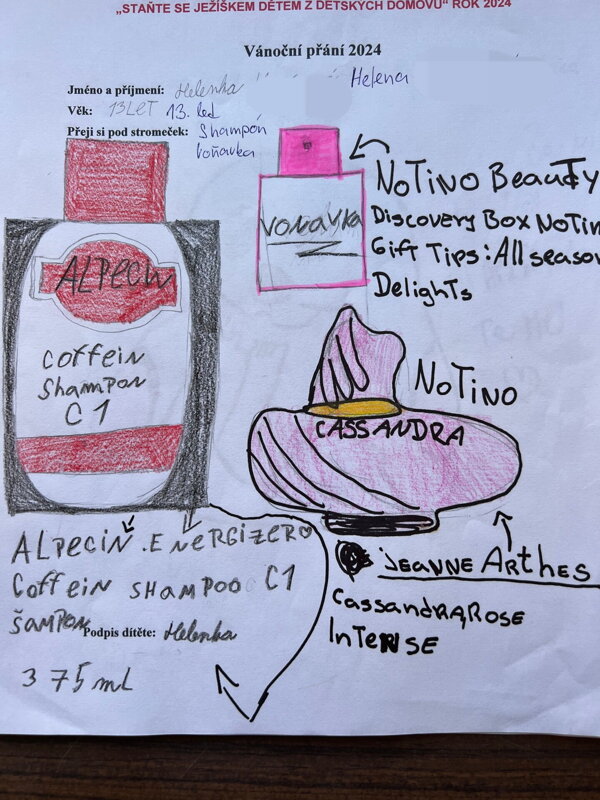 „STAŇTE SE JEŽÍŠKEM DĚTEM Z DĚTSKÝCH DOMOVŮ“ ROK 2024
Vánoční přání 2024
Jméno a příjmení: Helenka Helena
Věk: 13LET 13. let
Přeji si pod stromeček: Shampón
Voňavka
NOTINO BEAUTY
DISCOVERY BOX NOTIN
GIFT TIPS: ALL SEASO
DELIGHTS
VOŇAVKA
ALPECIN
Coffein
Shampon
C1
NOTINO
CASSANDRA
ALPECIN . ENERGIZER
Coffein SHAMPOO C1
ŠAMPON
Podpis dítěte: Helenka
375 mL
JEANNE ARTHES
CASSANDRA, ROSE
INTENSE